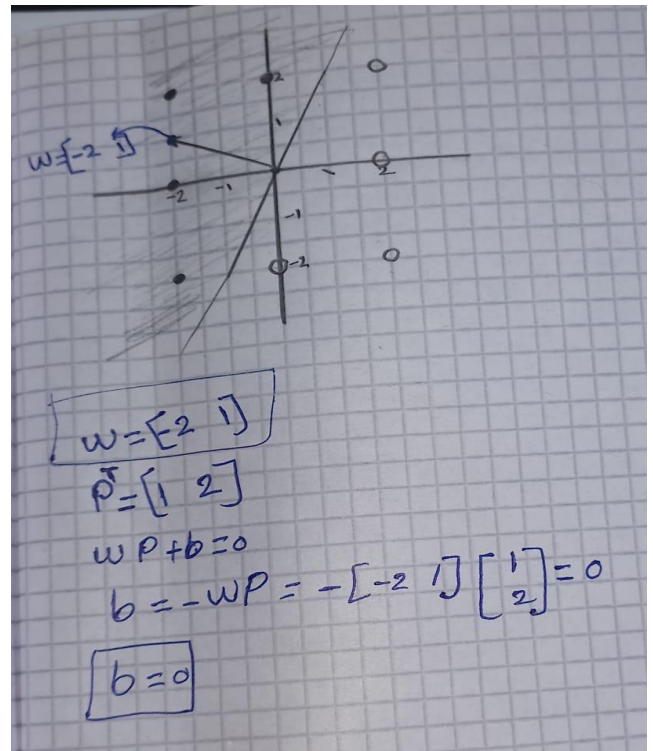 2
1
w=[-2 1]
-2
-1
1
2
-1
-2
w=[-2 1]
Pᵀ=[1 2]
wP+b=0
b=-wP=-[-2 1][1 2]=0
b=0